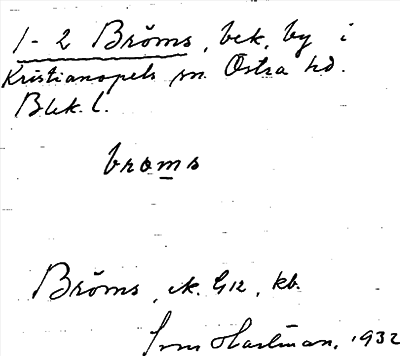 1-2 Bröms, bek, by i
Kristianopels sn. Östra hd.
Blek. l.
broms
Bröms, ek. G12, kb.
Hartman, 1932